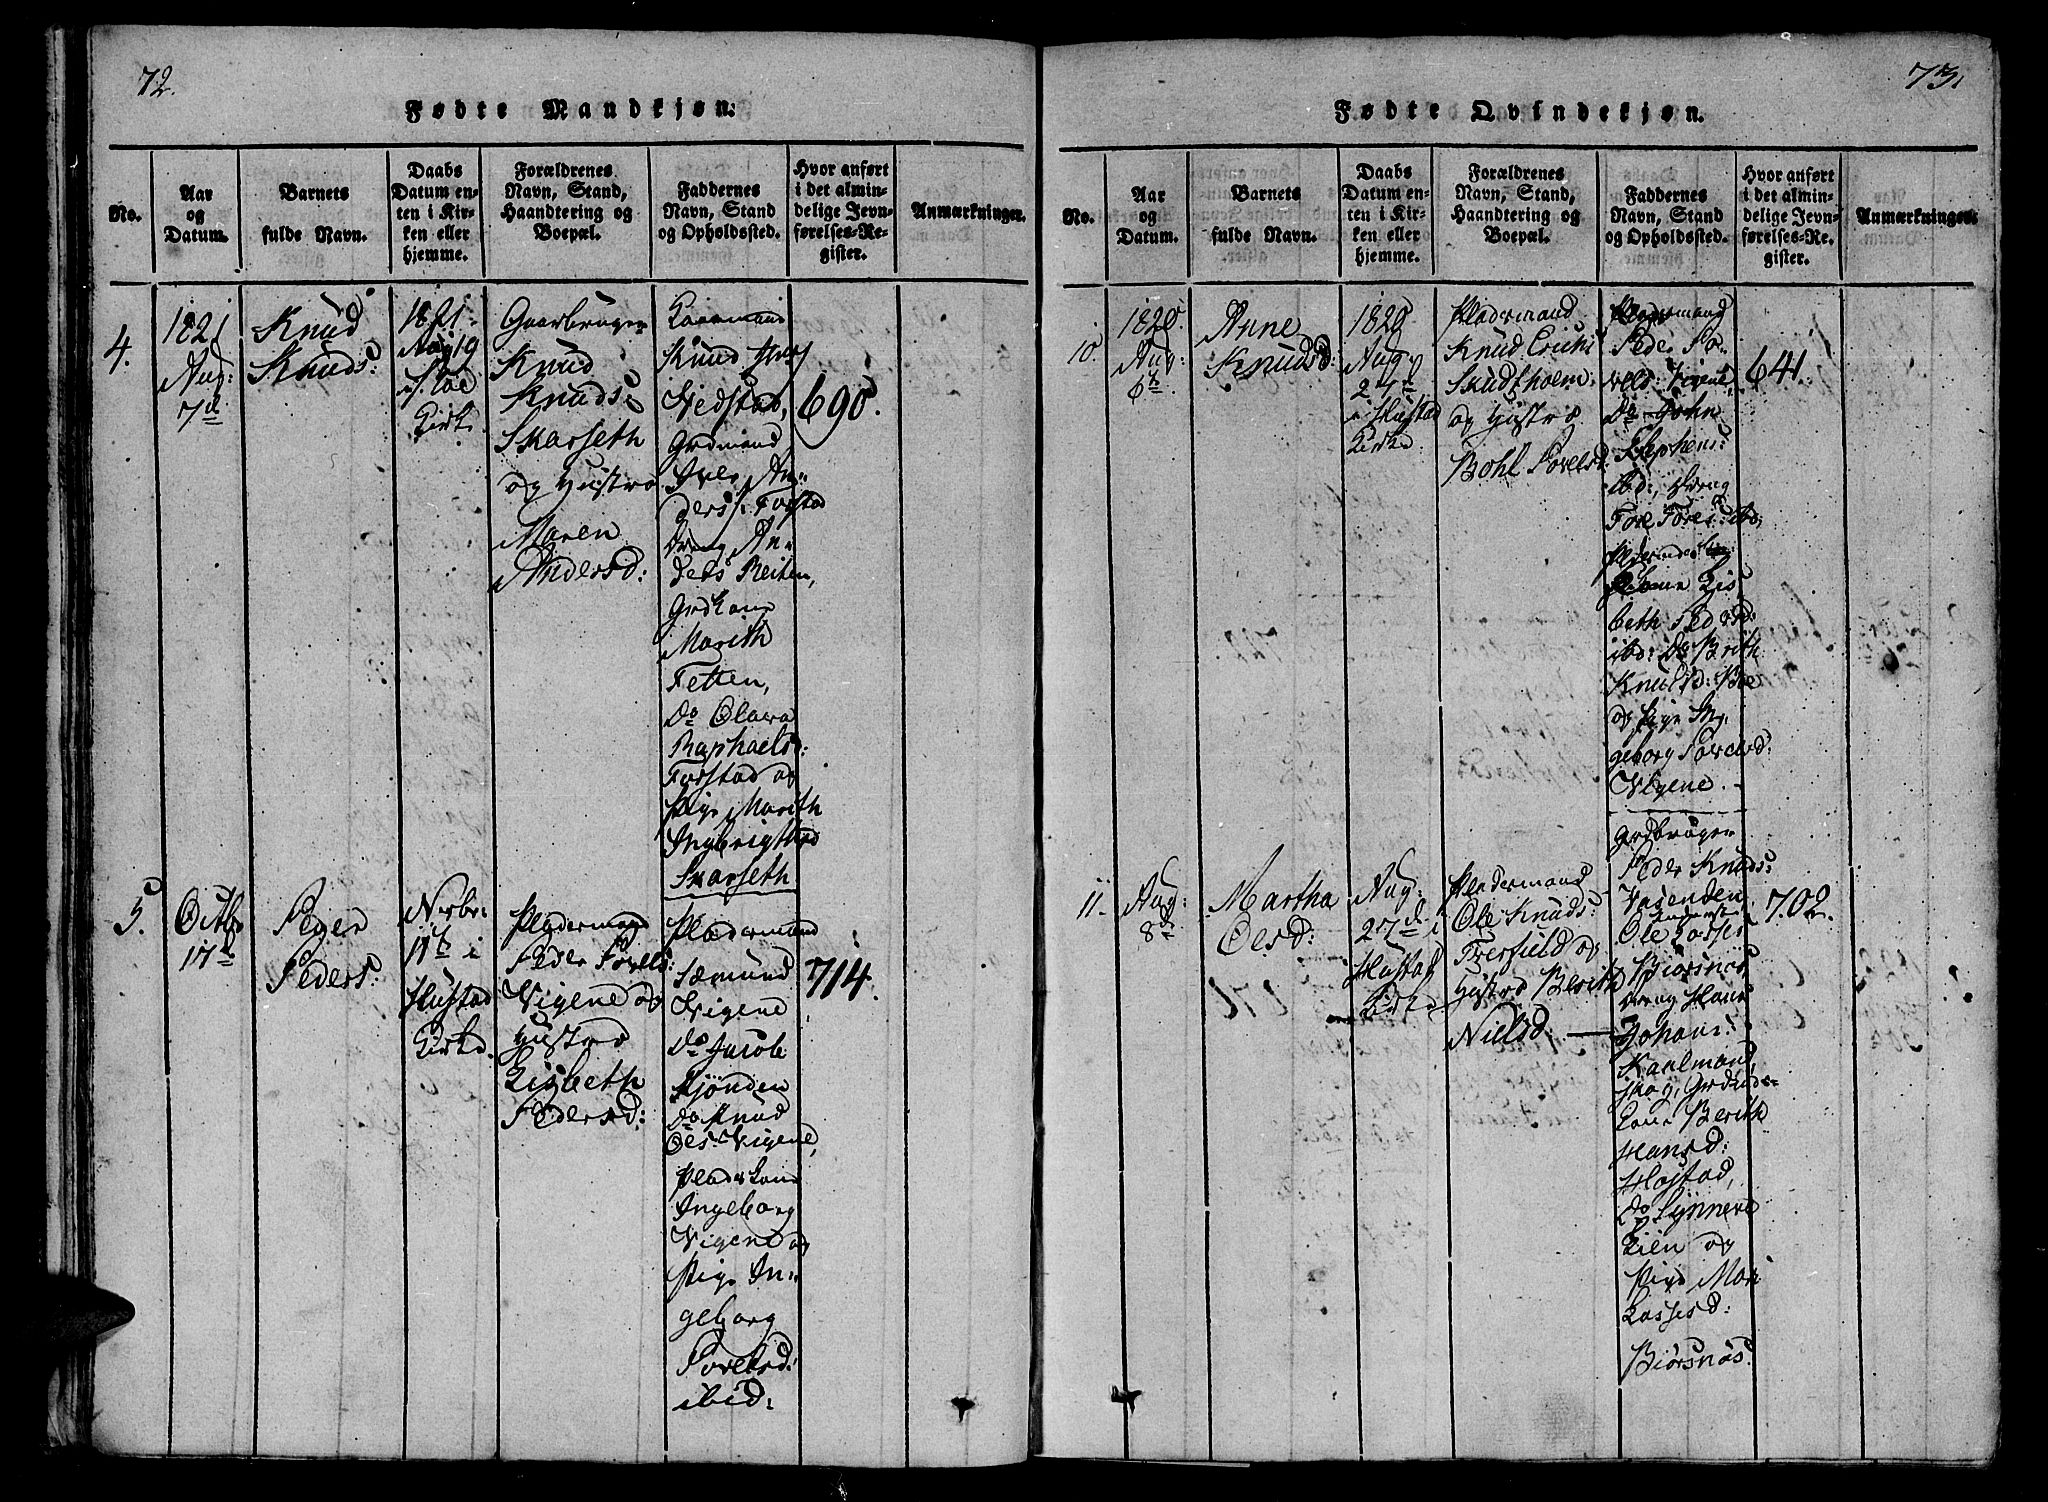 72.
Fødte Mandkjøn.
No.
Aar
og
Datum.
Barnets
fulde Navn.
Daabs
Datum en-
ten i Kir-
ken eller
hjemme.
Forældrenes
Navn, Stand,
Haandtering og
Boepæl.
Faddernes
Navn, Stand
og Opholdssted.
Hvor anført
i det almin-
delige Jevn-
førelses-Re-
gister.
Anmærkninger.
4.
1821
Aug:
7d
Knud
Knuds:
1821.
Aug 19
Kirk
Gaarbruger
Knud
Knuds:
Skarseth
og Hustro
Maren
Andersd:
Knud
Vedstad,
Grdmand
Iver An-
ders: Forstad
Dreng An-
ders Reiten,
Grdkone
Marith
Tetten,
Do Olava
Raphaelsd:
Forstad og
Pige Marith
Ingbrigtsd
Skarseth
690.
5.
Octbr
17d
Peder
Peders:
Novbr:
11d i
Hustad
Kirke.
Pladsmand
Peder Povels:
Vigene og
Hustro
Lisbeth
Pedersd:
Pladsmand
Sæmund
Vigene
Do Jacob
Do Knud
Oles: Vigene,
Pladskone
Ingeborg
Vigene og
Pige In-
geborg
Povelsd:
ibid:
714.
73.
Fødte Qvindekjøn.
No.
Aar
og
Datum.
Barnets
fulde Navn.
Daabs
Datum en-
ten i Kir-
ken eller
hjemme.
Forældrenes
Navn, Stand,
Haandtering og
Boepæl.
Faddernes
Navn, Stand
og Opholdssted.
Hvor anført
i det almin-
delige Jevn-
førelses-Re-
gister.
Anmærkninger.
10.
1820
Aug:
6d
Anne
Knudsd:
1820
Aug:
27d
i Hustad
Kirke
Pladsmand
Knud Erichs
Skudtholm
og Hustro
Bohl Povelsd:
Pladsmand
Peder Po-
vels: Vigene,
Do John
Stephens:
ibd:, Dreng
Tore Tores: ibd:
Lis
beth Pedersd:
ibd: Do Brith
Knudsd: Boe
og Pige In-
geborg Povelsd:
Vigene.
641.
11.
Aug:
8d
Martha
Olsd:
Aug:
27d i
Hustad
Kirke
Pladsmand
Ole Knuds:
Farefield og
Hustro Berith
Nielsd:
Grdbruger
Peder Knuds:
Vasenden
Ole Lasses
Biørsnøs
Dreng Hans
Johans:
skog, Grdmds-
kone Berith
Hansd:
Hostad,
Do Synneve
Lien og
Pige Mari
Lassesd:
Biørsnøs.
702.